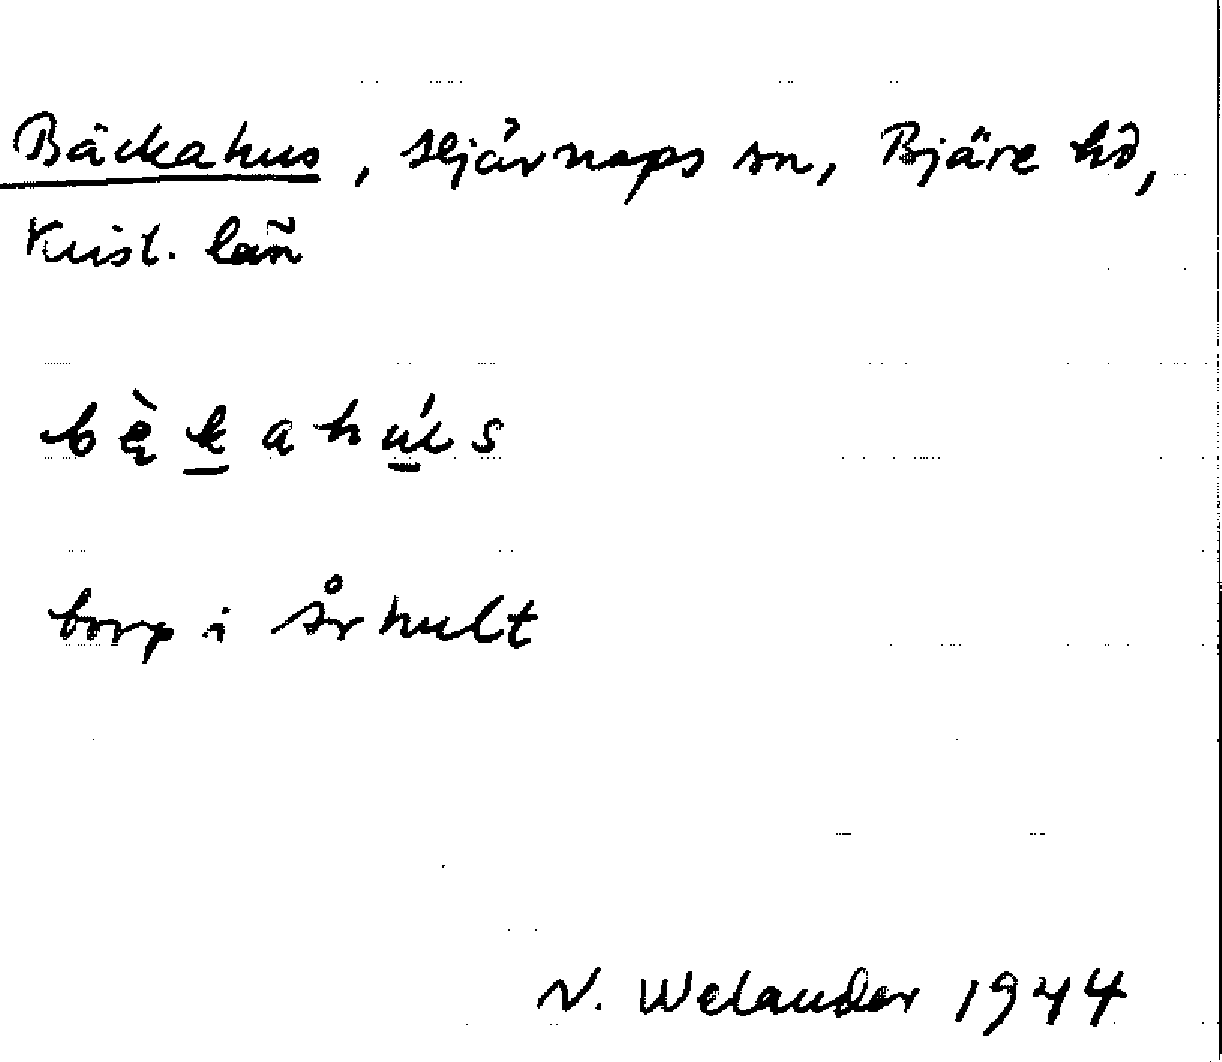 Bäckahus, Hjärnarps sn, Bjäre hd,
Krist. län
bę̀kahús
torp i Århult
N. Welander 1944